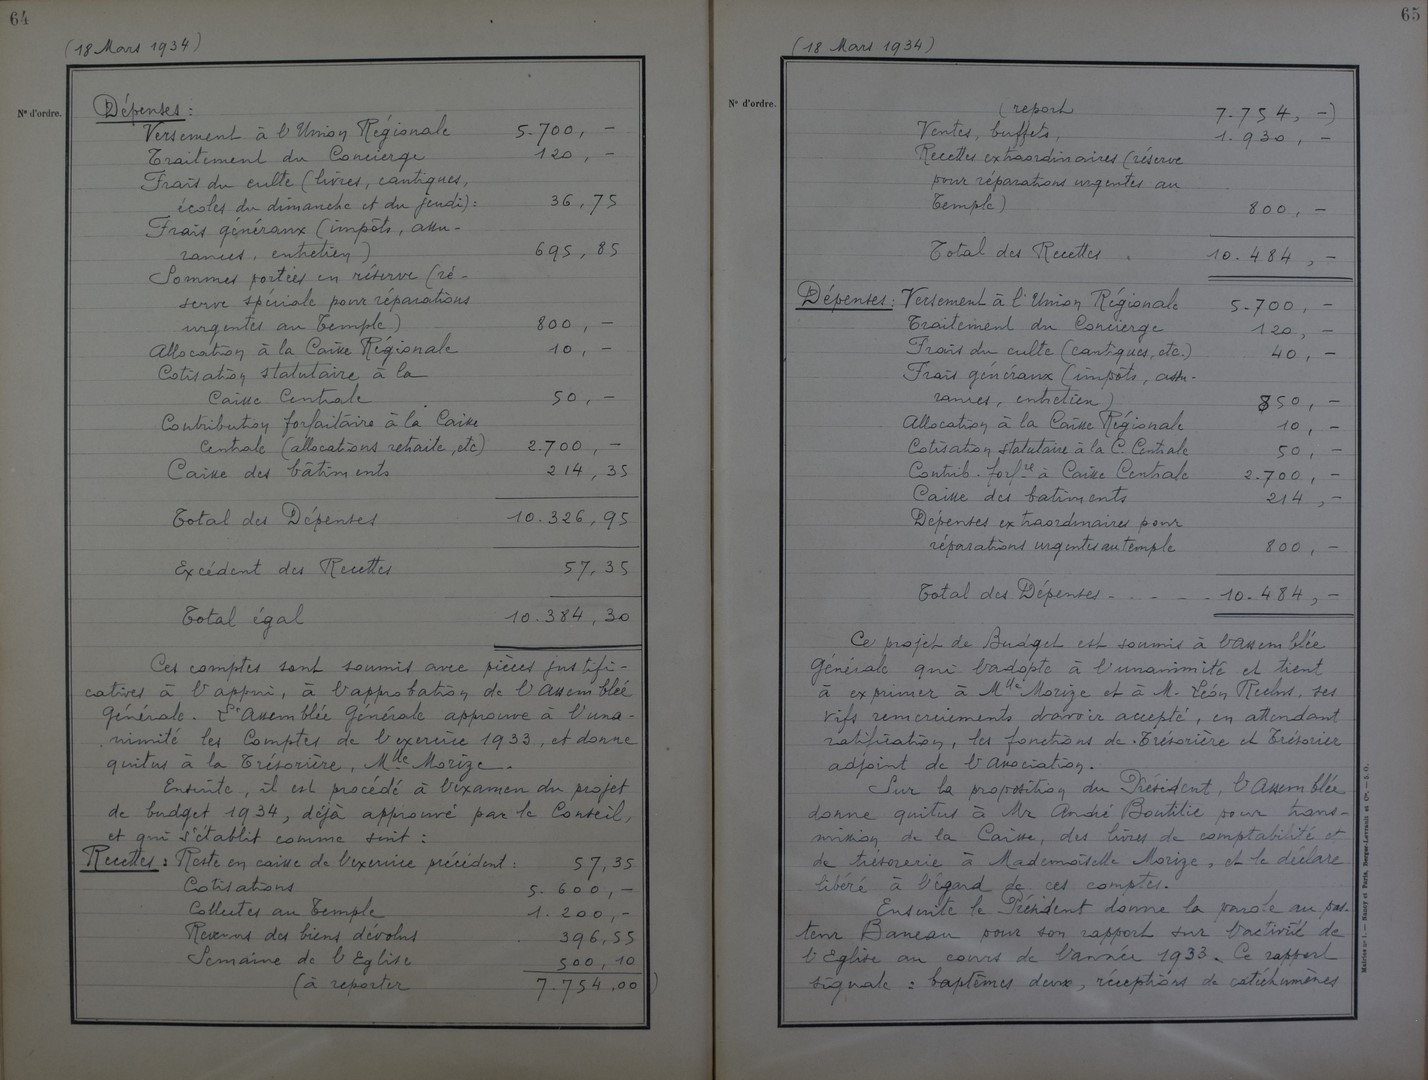 64
(18 Mars 1934)
N° d'ordre.
Dépenses :
Versement à l'Union Régionale 5.700, -
Traitement du Concierge 120, -
Frais du culte (livres, cantiques,
écoles du dimanche et du jeudi) : 36,75
Frais généraux (impôts, assu-
rances, entretien) 695,85
Sommes portées en réserve (ré-
serve spéciale pour réparations
urgentes au Temple) 800, -
Allocation à la Caisse Régionale 10, -
Cotisation statutaire à la
Caisse Centrale 50, -
Contribution forfaitaire à la Caisse
Centrale (allocations retraite, etc) 2.700, -
Caisse des bâtiments 214,35
Total des Dépenses 10.326,95
Excédent des Recettes 57,35
Total égal 10.384,30
Ces comptes sont soumis avec pièces justifi-
catives à l'appui, à l'approbation de l'Assemblée
Générale. L'Assemblée Générale approuve à l'una-
nimité les Comptes de l'exercice 1933, et donne
quitus à la Trésorière, Mlle Morize.
Ensuite, il est procédé à l'examen du projet
de budget 1934, déjà approuvé par le Conseil,
et qui s'établit comme suit :
Recettes : Reste en caisse de l'exercice précédent : 57,35
Cotisations 5.600, -
Collectes au Temple 1.200, -
Revenus des biens dévolus 396,55
Semaine de l'Eglise 500,10
(à reporter 7.754,00)
65
(18 Mars 1934)
N° d'ordre.
(report 7.754, -)
Ventes, buffets, 1.930, -
Recettes extraordinaires (réserve
pour réparations urgentes au
Temple) 800, -
Total des Recettes . 10.484, -
Dépenses : Versement à l'Union Régionale 5.700, -
Traitement du Concierge 120, -
Frais du culte (cantiques, etc.) 40, -
Frais généraux (impôts, assu-
rances, entretien) 850, -
Allocation à la Caisse Régionale 10, -
Cotisation statutaire à la C. Centrale 50, -
Contrib. forfre à Caisse Centrale 2.700, -
Caisse des batiments 214, -
Dépenses extraordinaires pour
réparations urgentes au temple 800, -
Total des Dépenses - - - - - 10.484, -
Ce projet de Budget est soumis à l'Assemblée
Générale qui l'adopte à l'unanimité et tient
à exprimer à Mlle Morize et à M. Léon Reclus, ses
vifs remerciements d'avoir accepté, en attendant
ratification, les fonctions de Trésorière et Trésorier
adjoint de l'Association.
Sur la proposition du Président, l'Assemblée
donne quitus à Mr André Boutitie pour trans-
mission de la Caisse, des livres de comptabilité et
de trésorerie à Mademoiselle Morize, et le déclare
libéré à l'égard de ces comptes.
Ensuite le Président donne la parole au pas-
teur Baneau pour son rapport sur l'activité de
l'Eglise au cours de l'année 1933. Ce rapport
signale : baptêmes deux, réceptions de catéchumènes
Mairies n° 1. — Nancy et Paris, Berger-Levrault et Cie. — S. O.